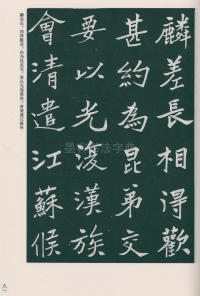 麟差長相得歡
甚約為昆弟交
要以光復漢族
會清遣江蘇候